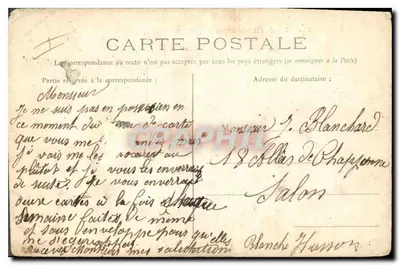 CARTE POSTALE
La correspondance au recto n'est pas acceptée par tous les pays étrangers (se renseigner à la Poste)
Partie réservée à la correspondance:
Adresse du destinataire:
Monsieur
Je ne suis pas en possession en
ce moment du de carte
que vous me mais
je vais me les au
plutot et je vous les enverrai
de suite. Je vous enverrai
deux cartes à la fois
semaine faites de même
et sous enveloppe pour qu'elles
ne
Recevez Monsieur mes salutations
Monsieur J. Blanchard
18 Allées de Chapponne
Salon
Blanche Husson